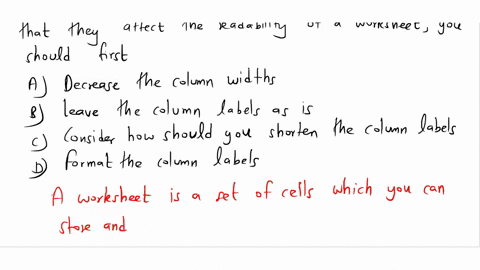 that they affect the readability of a worksheet, you
should first
A) Decrease the column widths
B) leave the column labels as is
C) Consider how should you shorten the column labels
D) format the column labels
A worksheet is a set of cells which you can
store and